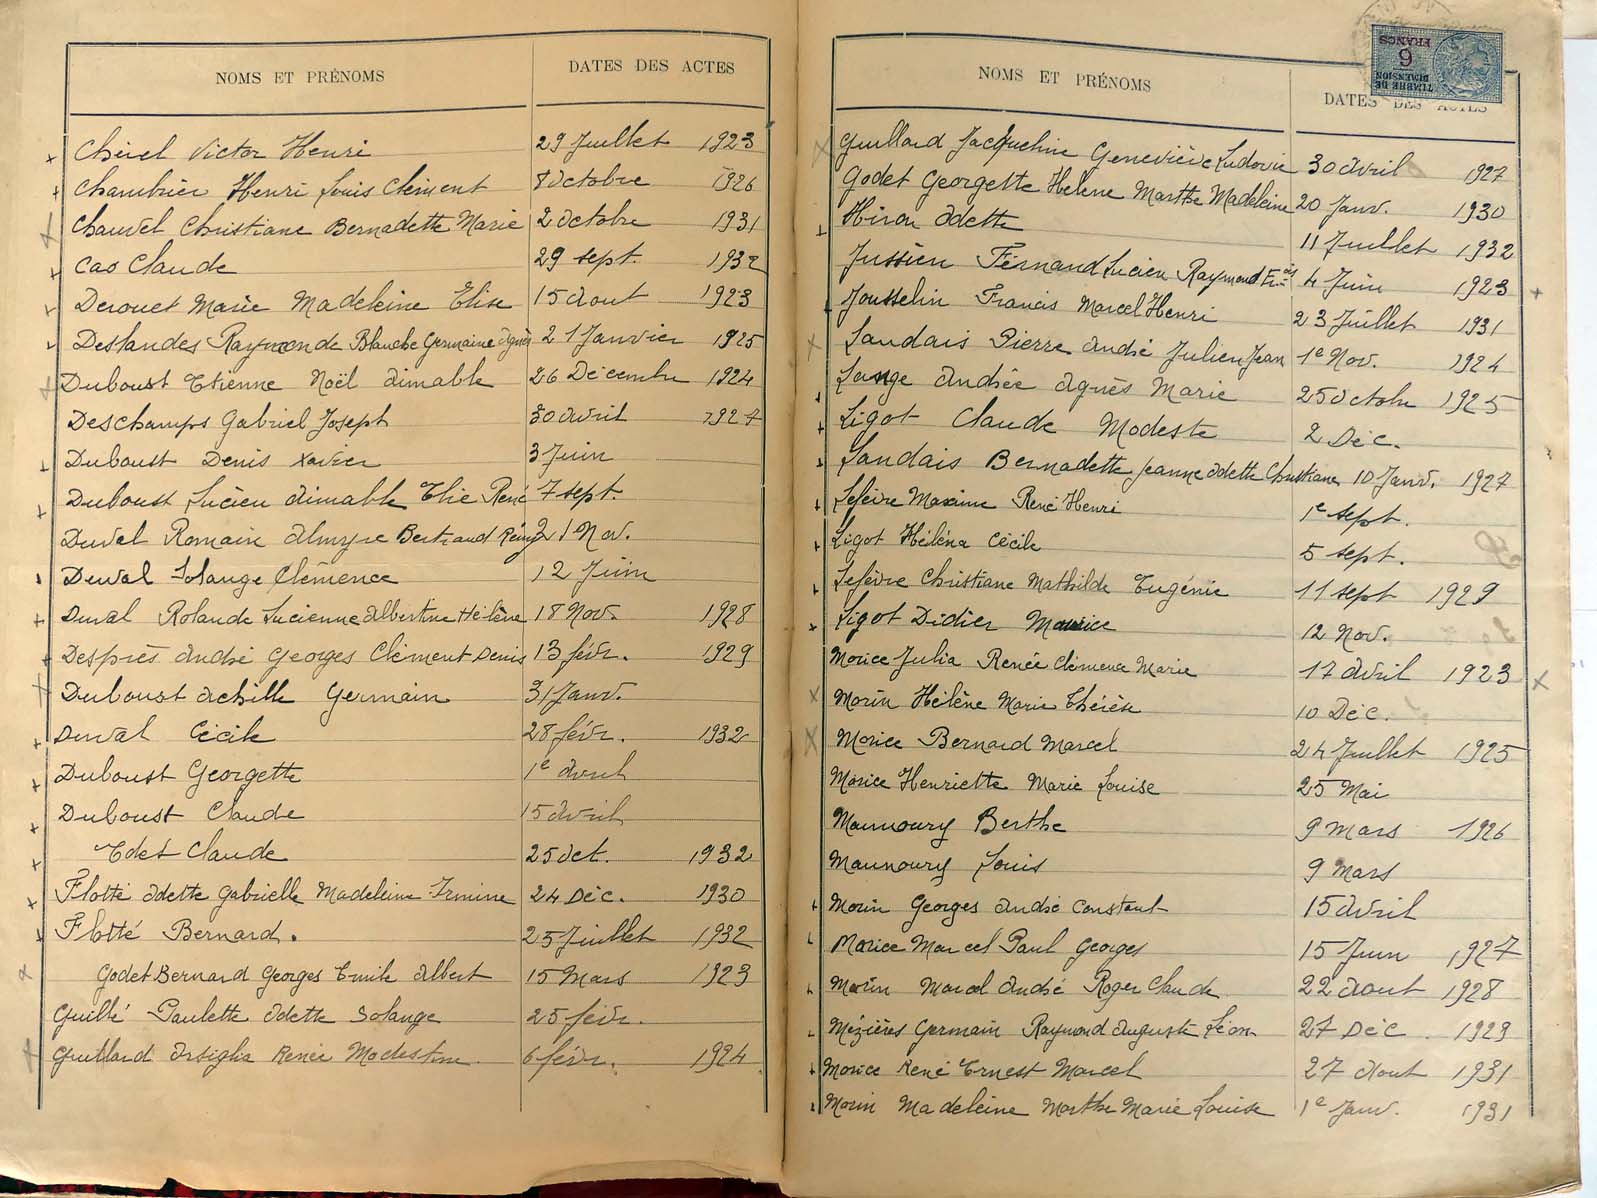 NOMS ET PRÉNOMS DATES DES ACTES
Chérel Victor Henri 29 Juillet 1923
Chambrier Henri Louis Clément 8 Octobre 1926
Chauvel Christiane Bernadette Marie 2 Octobre 1931
Cao Claude 29 sept. 1932
Derouet Marie Madeleine Elise 15 Aout 1923
Deslandes Raymonde Blanche Germaine Agnès 21 Janvier 1925
Duboust Etienne Noël Aimable 26 Décembre 1924
Deschamps Gabriel Joseph 30 Avril 1927
Duboust Denis Xavier 3 Juin
Duboust Lucien Aimable Elie René 7 sept.
Duval Romain Almyre Bertrand Rémy 21 Nov.
Duval Solange Clémence 12 Juin
Duval Rolande Lucienne Albertine Hélène 18 Nov. 1928
Desprès André Georges Clément Denis 13 févr. 1929
Duboust Achille Germain 31 Janv.
Duval Cécile 28 févr. 1932
Duboust Georgette 1e Avril
Duboust Claude 15 Avril
Edet Claude 25 Oct. 1932
Flotté Odette Gabrielle Madeleine Irmine 24 Déc. 1930
Flotté Bernard. 25 Juillet 1932
Godet Bernard Georges Emile Albert 15 Mars 1923
Guillé Paulette Odette Solange 25 févr.
Guillard Renée Modestine 6 févr. 1924
NOMS ET PRÉNOMS DATES DES ACTES
TIMBRE DE DIMENSION
6 FRANCS
Guillard Jacqueline Geneviève Ludovic 30 Avril 1927
Godet Georgette Hélène Marthe Madeleine 20 Janv. 1930
Hiron Odette 11 Juillet 1932
Jussien Fernand Lucien Raymond Fçois 4 Juin 1923
Jousselin Francis Marcel Henri 23 Juillet 1931
Landais Pierre André Julien Jean 1e Nov. 1924
Lange Andrée Agnès Marie 25 Octobre 1925
Ligot Claude Modeste 2 Déc.
Landais Bernadette Jeanne Odette Christiane 10 Janv. 1927
Lefèvre Maxime René Henri 1e sept.
Ligot Héléna Cécile 5 sept.
Lefèvre Christiane Mathilde Eugénie 11 sept 1929
Ligot Didier Maurice 12 Nov.
Morice Julia Renée Clémence Marie 17 Avril 1923
Morin Hélène Marie Thérèse 10 Déc.
Morice Bernard Marcel 24 Juillet 1925
Morice Henriette Marie Louise 25 Mai
Maunoury Berthe 9 Mars 1926
Maunoury Louis 9 Mars
Morin Georges André Constant 15 Avril
Morice Marcel Paul Georges 15 Juin 1927
Morin Marcel André Roger Claude 22 Aout 1928
Mézières Germain Raymond Auguste Léon 27 Déc 1929
Morice René Ernest Marcel 27 Aout 1931
Morin Madeleine Marthe Marie Louise 1e Janv. 1931